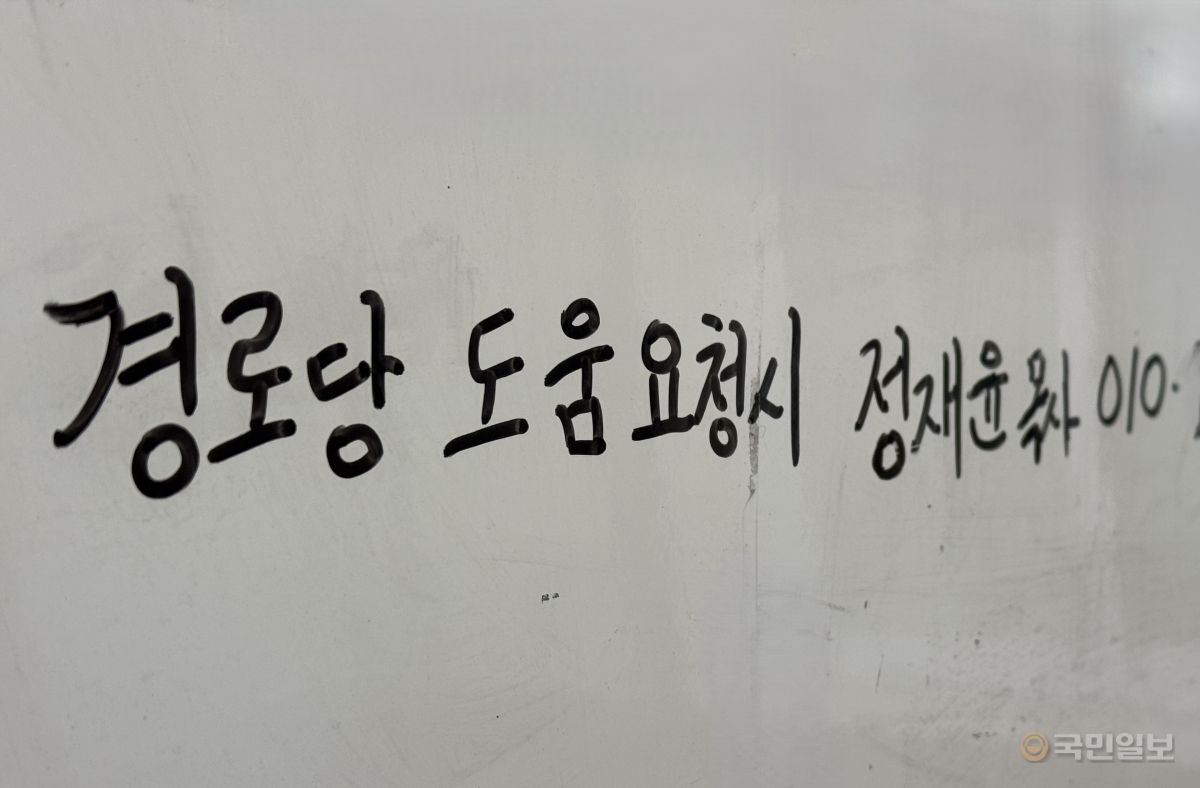 경로당 도움 요청시 정재윤 목사 010.
국민일보